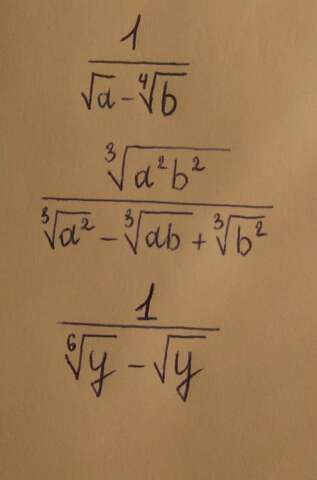 1
√a - ⁴√b
³√a²b²
³√a² - ³√ab + ³√b²
1
⁶√y - √y